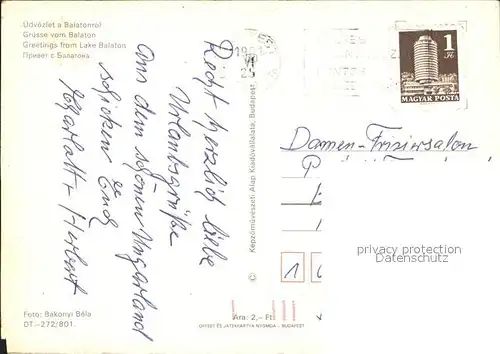 Üdvözlet a Balatonról
Grüsse vom Balaton
Greetings from Lake Balaton
Привет с Балатона
Recht herzlich liebe
Urlaubsgrüße
aus dem schönen Ungarland
schicken Euch
Herbert
Foto: Bakonyi Béla
DT.-272/801.
© Képzőművészeti Alap Kiadóvállalata, Budapest
Ára: 2,- Ft
OFFSET ÉS JÁTÉKKÁRTYA NYOMDA - BUDAPEST
VI
25
1
Ft
MAGYAR POSTA
Damen-Friziersalon
privacy protection
Datenschutz
1